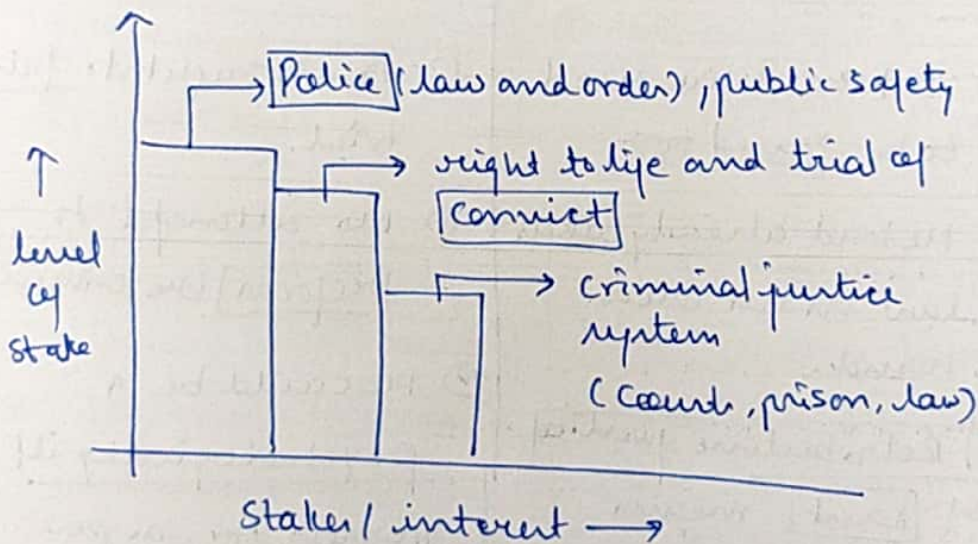 Police (law and order), public safety
right to life and trial of
convict
criminal justice
system
(Court, prison, law)
↑
level
of
stake
Stakes / interest →